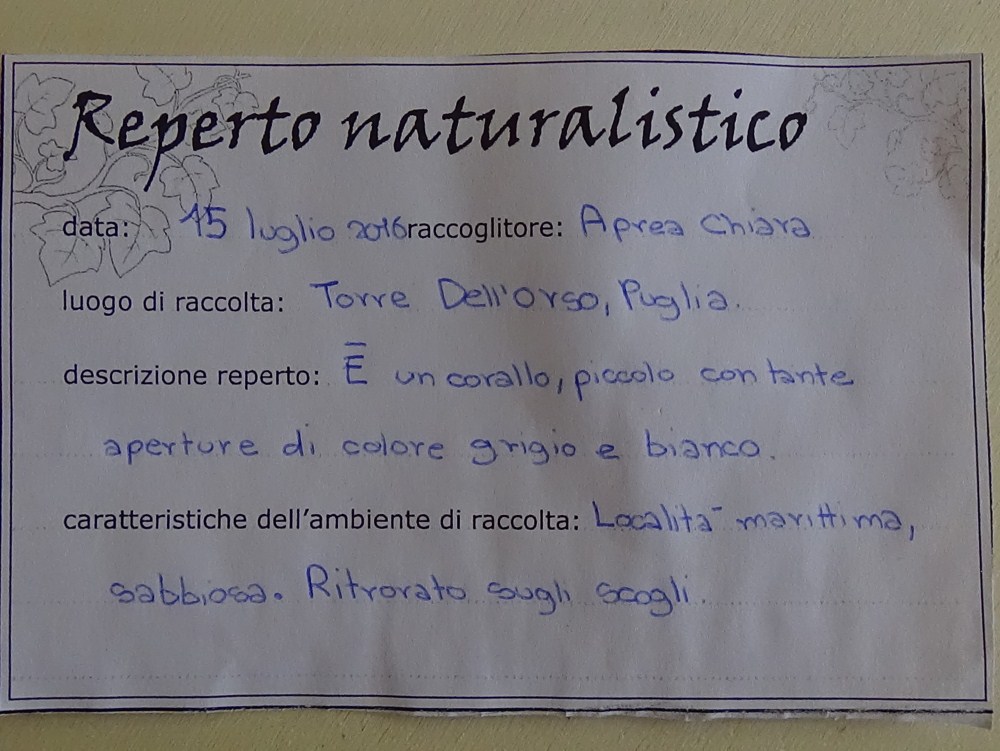 Reperto naturalistico
data: 15 luglio 2016 raccoglitore: Aprea Chiara
luogo di raccolta: Torre Dell'Orso, Puglia.
descrizione reperto: È un corallo, piccolo con tante
aperture di colore grigio e bianco.
caratteristiche dell'ambiente di raccolta: Località marittima,
sabbiosa. Ritrovato sugli scogli.